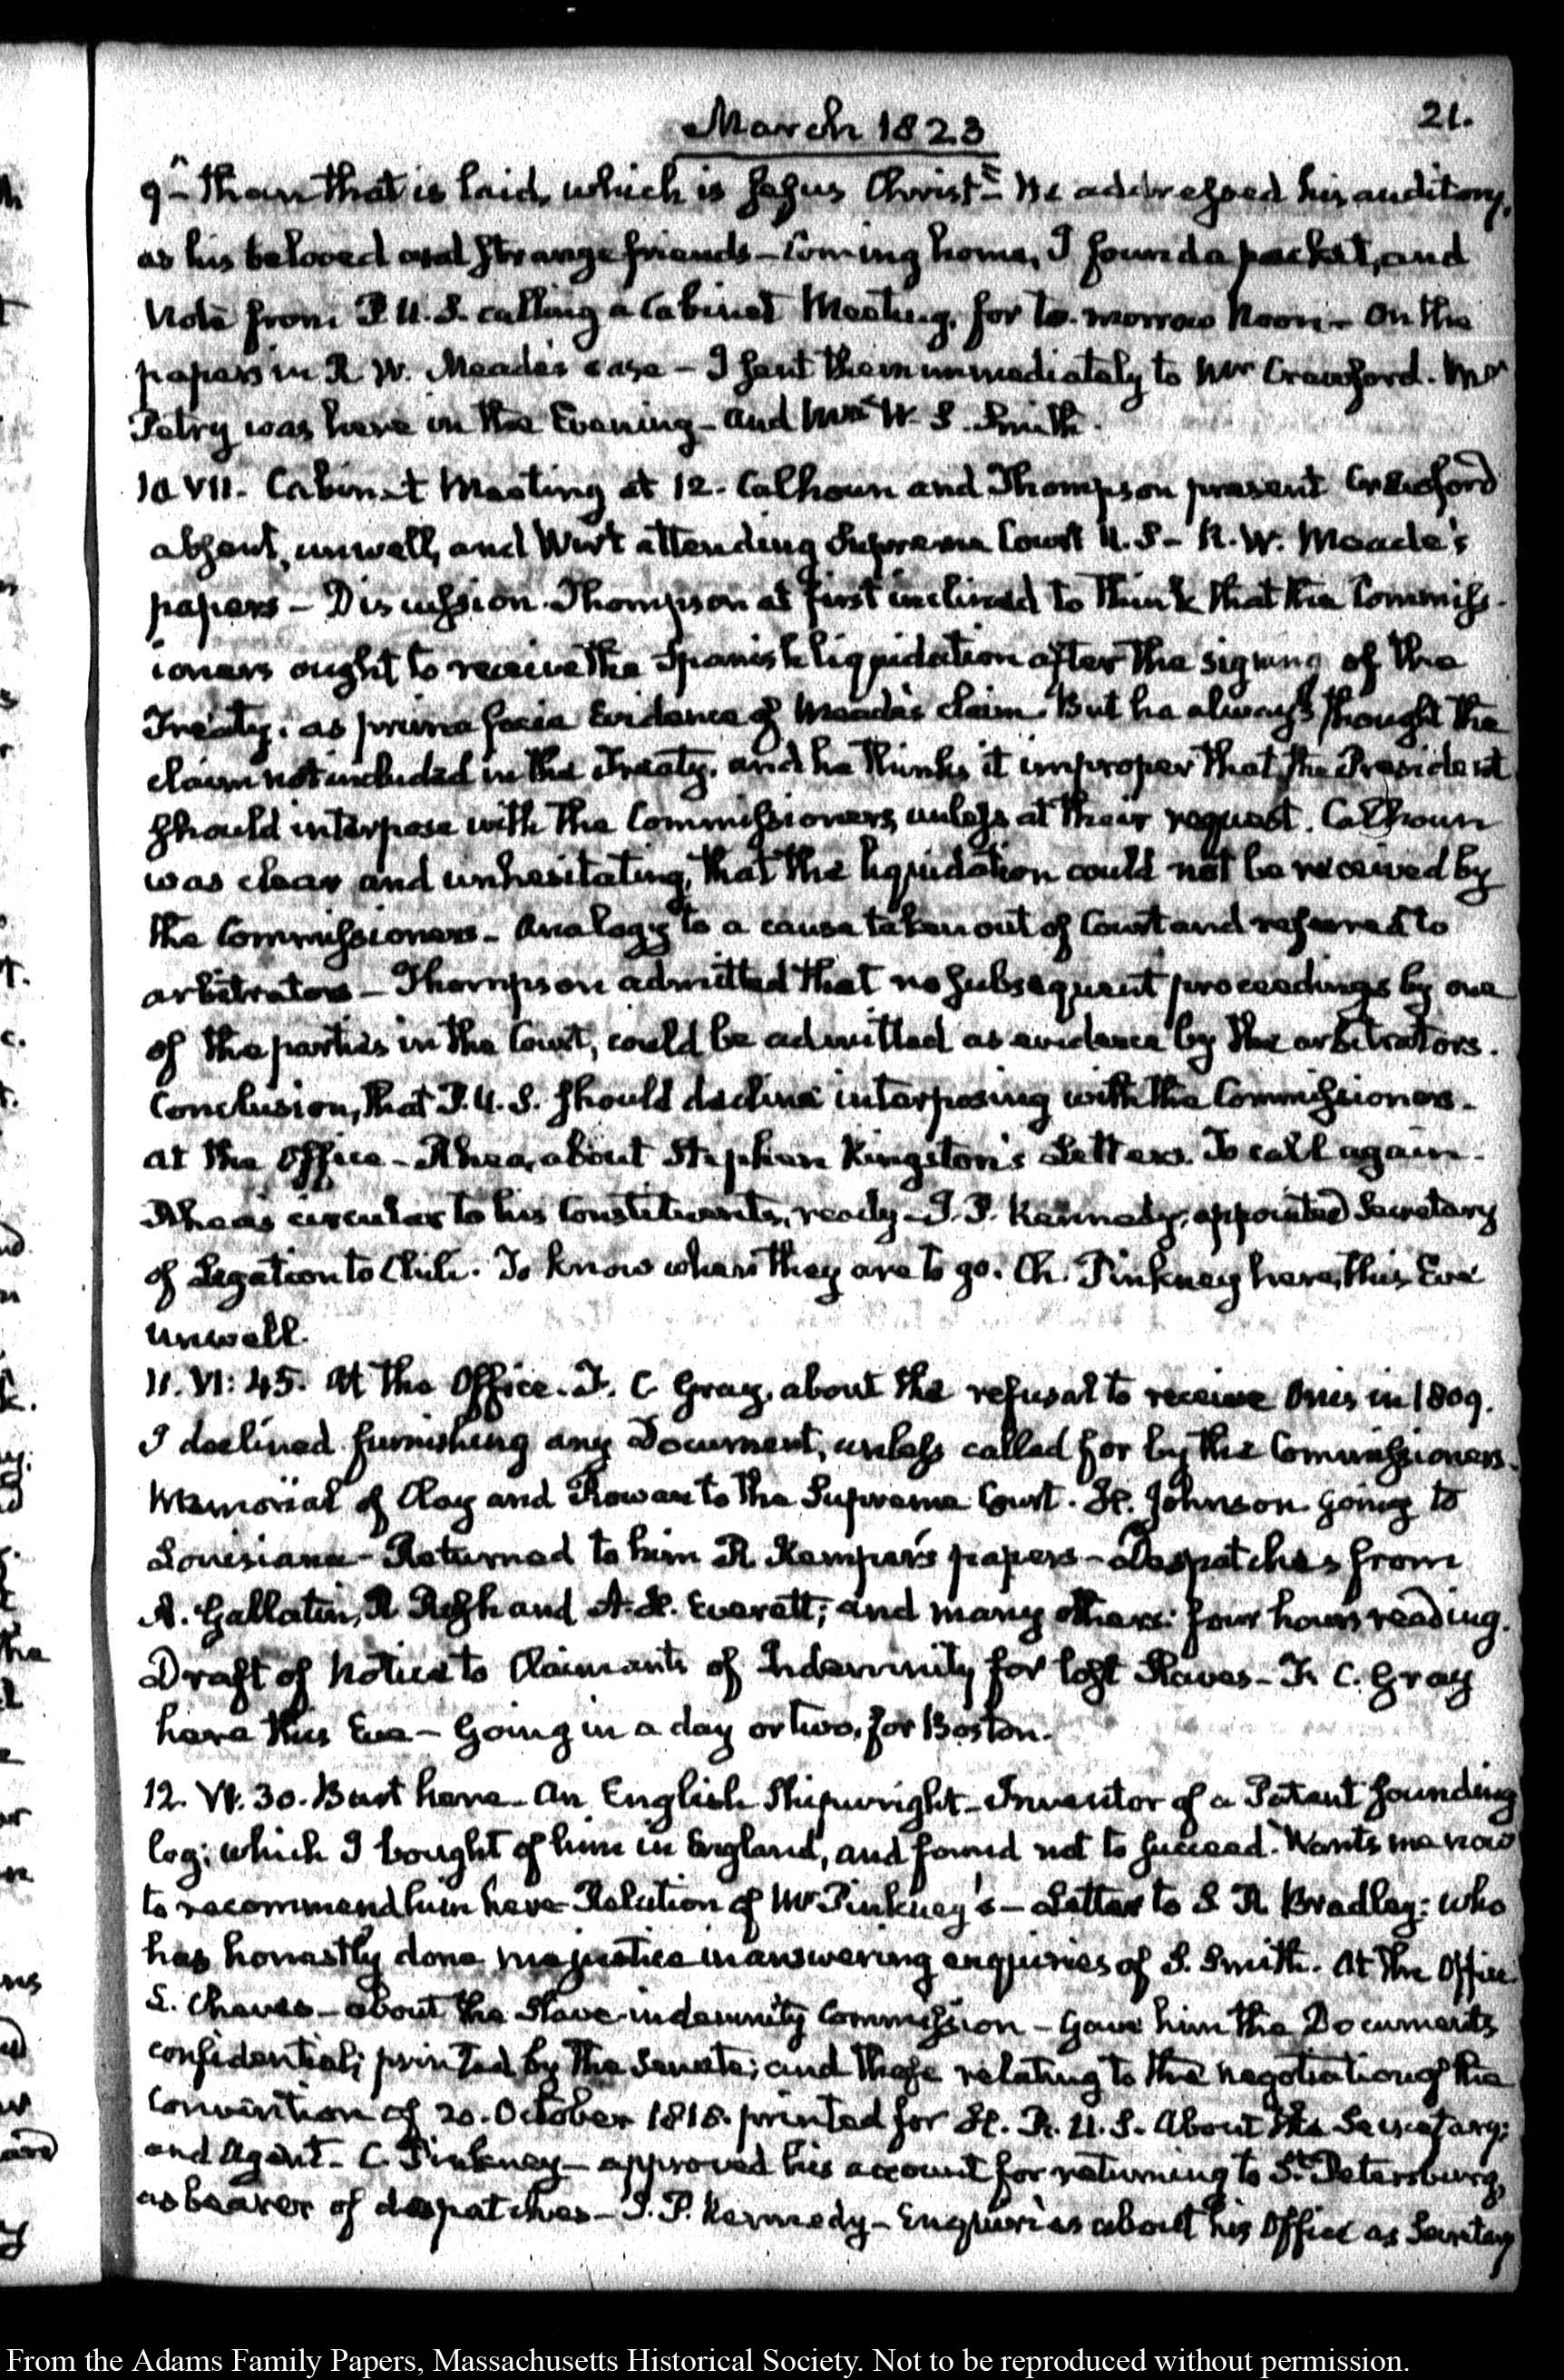 March 1823
21.
9 — than that is laid, which is Jesus Christ" — He addressed his auditory,
as his beloved and strange friends — Coming home, I found a packet, and
Note from P. U. S. calling a Cabinet Meeting, for to-morrow Noon — On the
papers in R. W. Meade's case — I sent them immediately to Mr Crawford. Mr
Petry was here in the Evening — and Mrs W. S. Smith.
10 VII. Cabinet Meeting at 12. Calhoun and Thompson present Crawford
absent, unwell, and Wirt attending Supreme Court U. S — R. W. Meade's
papers — Discussion. Thompson at first inclined to think that the Commiss-
ioners ought to receive the Spanish liquidation after the signing of the
Treaty, as prima facie Evidence of Meade's claim. But he always thought the
claim not included in the Treaty, and he thinks it improper that the President
should interpose with the Commissioners, unless at their request. Calhoun
was clear and unhesitating, that the liquidation could not be received by
the Commissioners — Analogy to a cause taken out of Court and referred to
arbitrators — Thompson admitted that no subsequent proceedings by one
of the parties in the Court, could be admitted as evidence by the arbitrators.
Conclusion, that P. U. S. should decline interposing with the Commissioners.
At the Office — Rhea, about Stephen Kingston's Letters. To call again.
Rhea's circular to his Constituents, ready — J. P. Kennedy, appointed Secretary
of Legation to Chili. To know when they are to go. Ch. Pinkney here, this Eve
unwell.
11. VI: 45. At the Office. F. C. Gray, about the refusal to receive Onis in 1809.
I declined furnishing any Document, unless called for by the Commissioners.
Memorial of Clay and Rowan to the Supreme Court. H. Johnson going to
Louisiana — Returned to him R Kemper's papers — Despatches from
A. Gallatin, R Rush and A. H. Everett; and many others: four hours reading.
Draft of Notice to Claimants of Indemnity for lost Slaves — F. C. Gray
here this Eve — Going in a day or two, for Boston.
12. VI. 30. Burt here — An English Shipwright — Inventor of a Patent sounding
log; which I bought of him in England, and found not to succeed. Wants me now
to recommend him here — Relation of Mr Pinkney's — Letter to S R Bradley: who
has honestly done me justice in answering enquiries of S. Smith. At the Office
L. Cheves — about the Slave-indemnity Commission — Gave him the Documents
confidential; printed by the Senate; and those relating to the negotiation of the
Convention of 20. October 1818. printed for H. R. U. S. About the Secretary;
and Agent — C. Pinkney — approved his account for returning to St Petersburg,
as bearer of despatches — J. P. Kennedy — Enquiries about his Office as Secretary
From the Adams Family Papers, Massachusetts Historical Society. Not to be reproduced without permission.